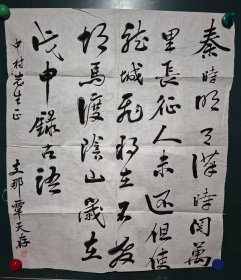 秦時明月漢時関萬
里長征人未還但使
龍城飛将在不教
胡馬渡陰山歲在
戊申錄古語
中村先生正
支那覃天存